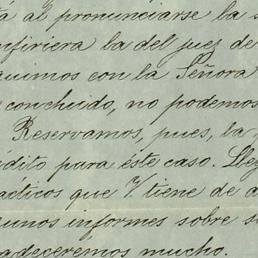 al pronunciarse la s
nfiriera ba del juez de
uimos con la Señora
concluido, no podemos
Reservamos, pues, la
édito para este caso. Lleg
ácticos que V. tiene de a
unos informes sobre s
adeceremos mucho.